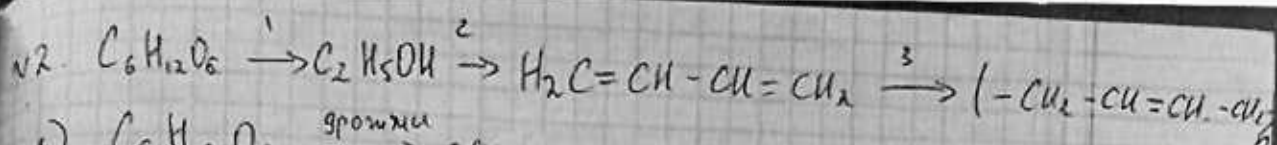 №2. C₆H₁₂O₆ →¹ C₂H₅OH →² H₂C=CH-CH=CH₂ →³ (-CH₂-CH=CH-CH₂
дрожжи